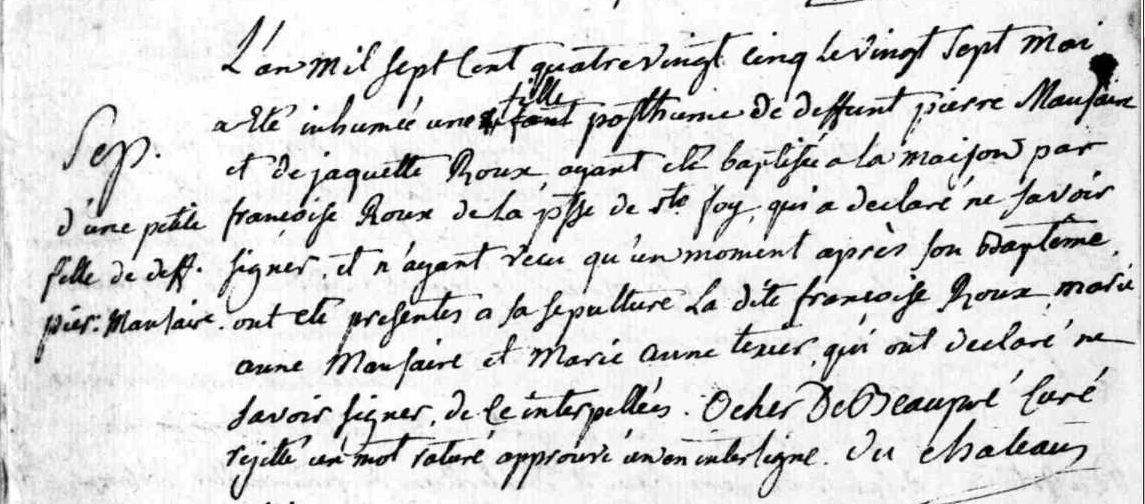 L'an mil sept cent quatre vingt cinq le vingt sept mai
a eté inhumée une fille posthume de deffunt pierre Mausaire
et de jaquette Roux, ayant eté baptisée a la maison par
françoise Roux de la psse de ste foy, qui a declaré ne savoir
signer, et n'ayant vécu qu'un moment après son Baptême,
ont eté presentes a sa sepulture la dite françoise Roux, marie
anne Mausaire et Marie anne texier, qui ont declaré ne
savoir signer, de ce interpellées. Ocher De Beaupré Curé
rejetté un mot raturé approuvé un en interligne. du chateau
Sep.
d'une petite
fille de deff.
pier. Mausaire.